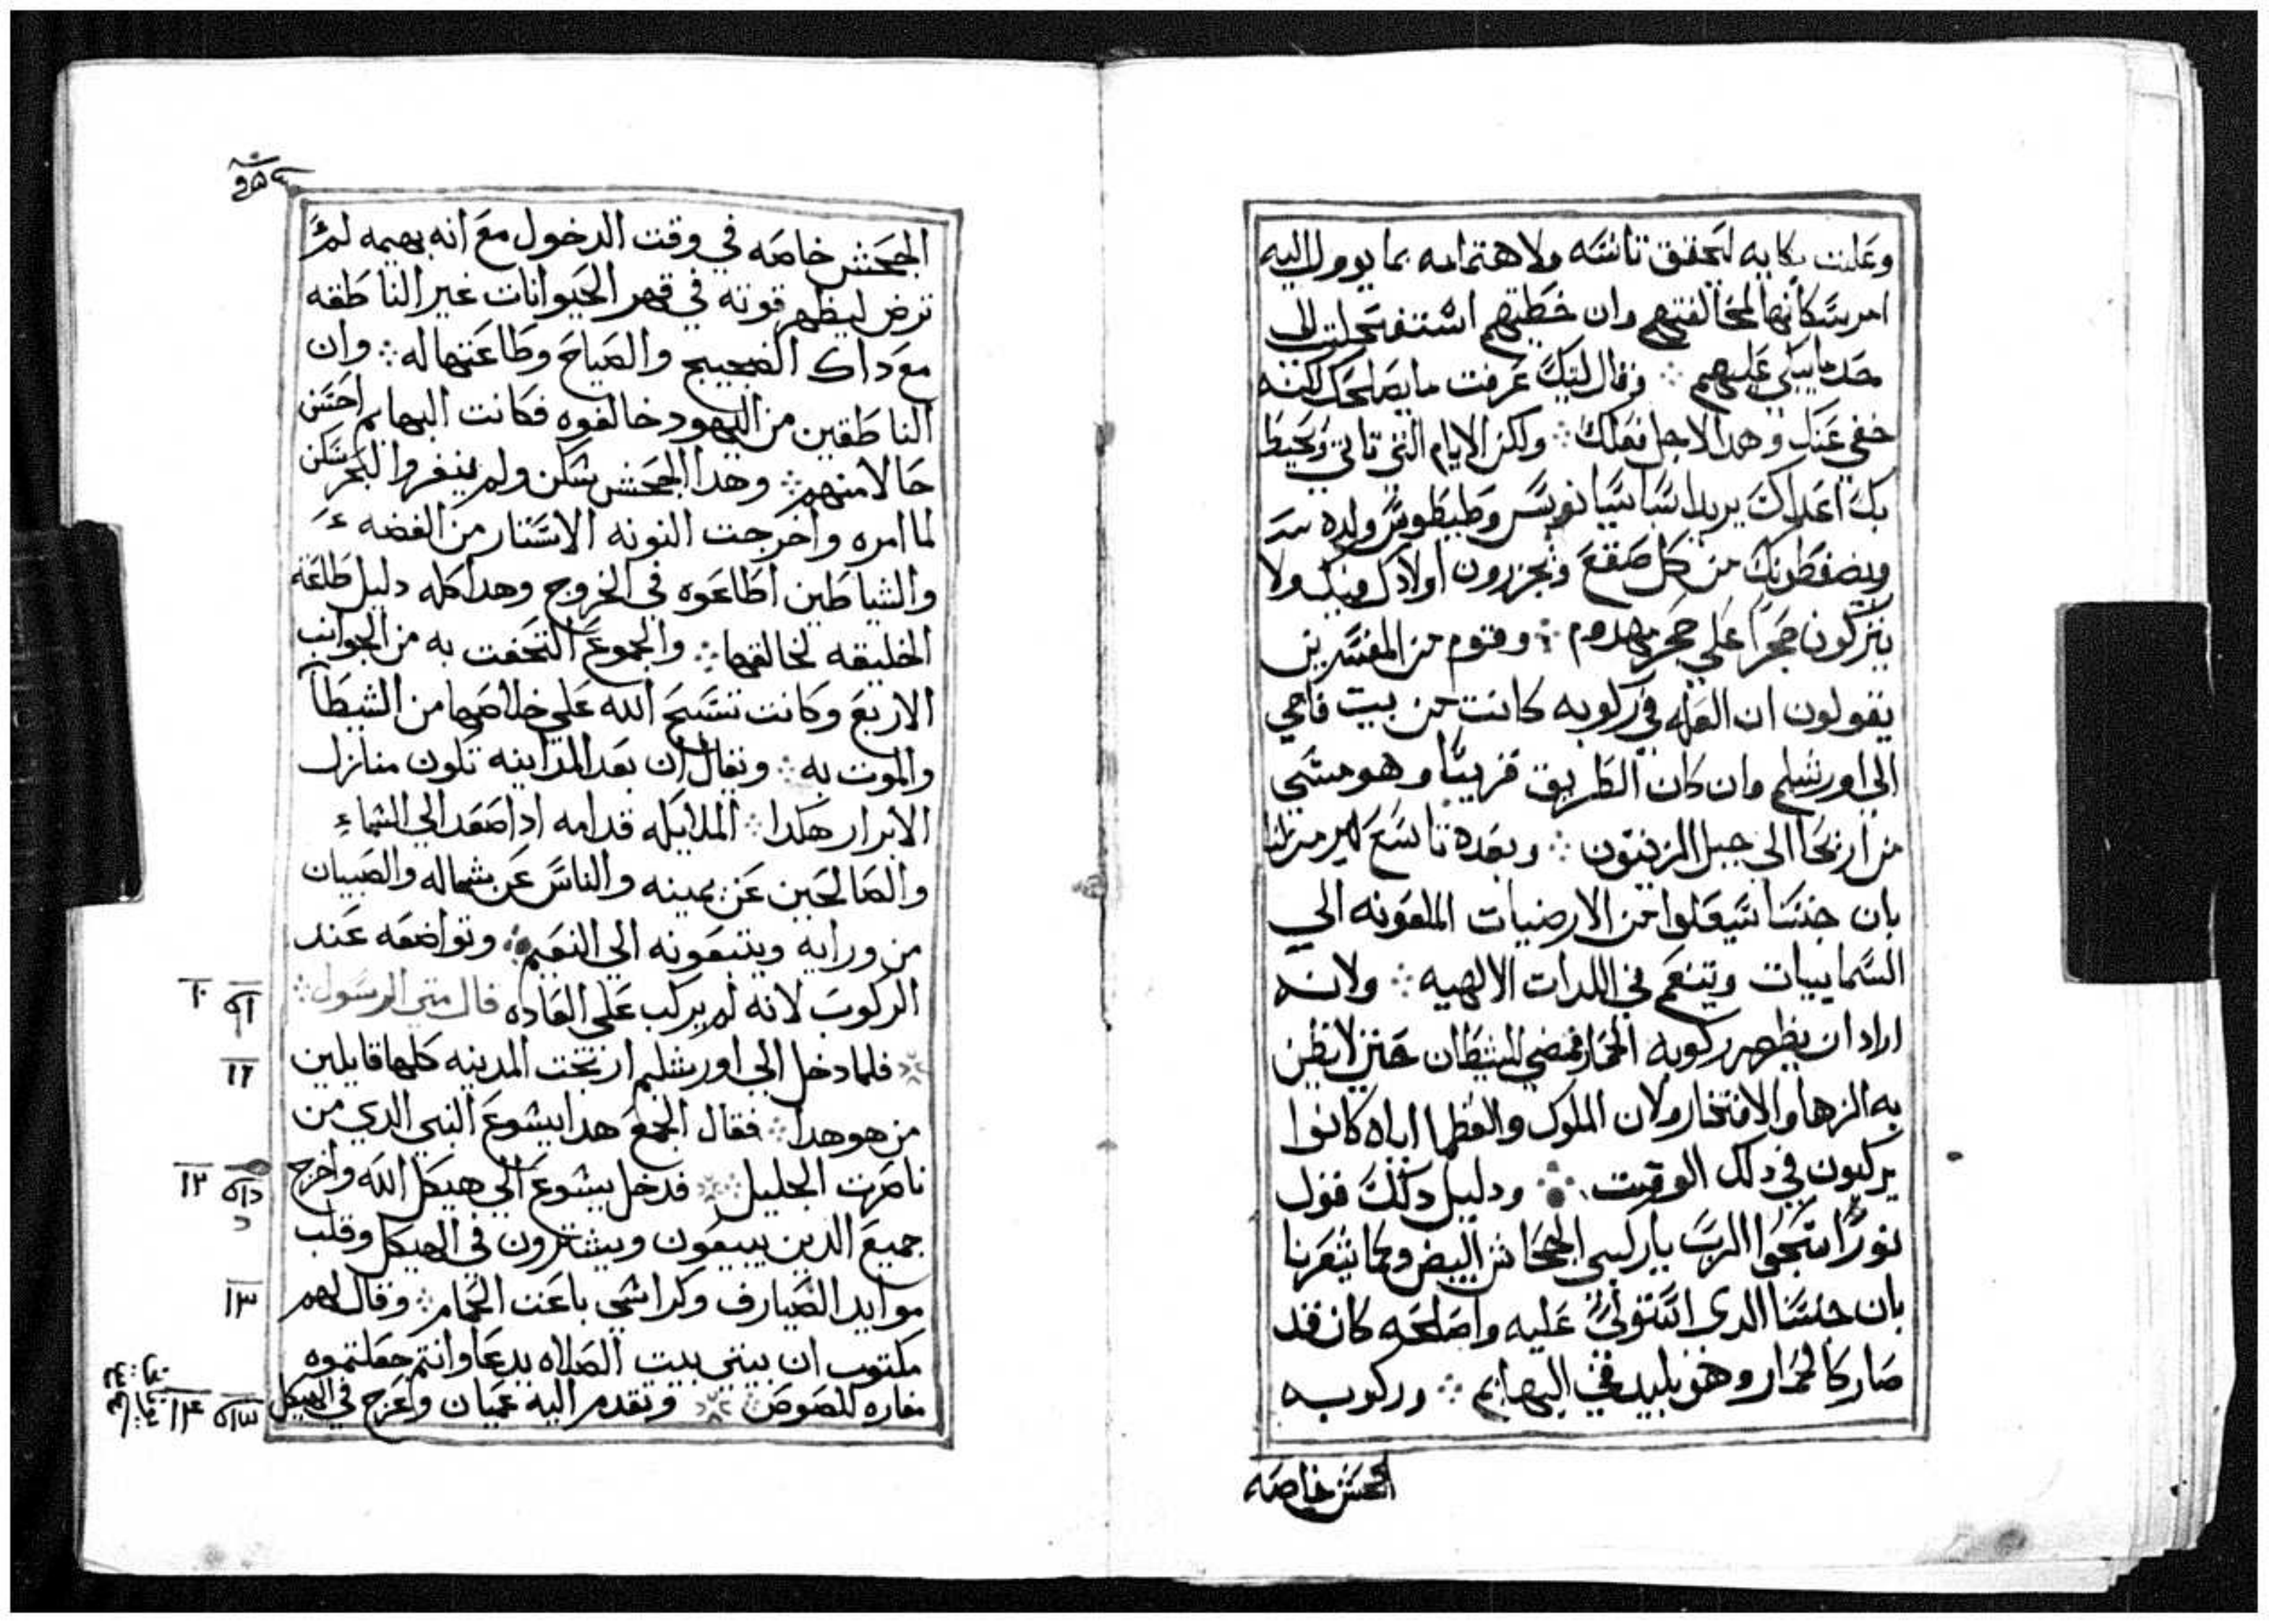 وعلت بكايه لتحقق تانسه ولاهتمامه بما يوول اليه
امر سكانها لمخالفتهم وان خطيتهم استفحلت الى
عليهم ⁘ وقال ليتك عرفت ما يصلحك لكنه
خفي عنك وهدا لاجل فعلك ⁘ ولكن الايام التي تاتي وتحيط
بك اعداك يريد اسباسيانوس وطيطوس ولده
ويضغطونك من كل صقع ويجزرون اولادك فيك ولا
يتركون حجرا على حجر مهدوم ⁘ وقوم من المفسرين
يقولون ان العله في ركوبه كانت من بيت فاجي
الى اورشليم وان كان الطريق قريبا وهو مشي
من اريحا الى جبل الزيتون ⁘ وبعده تاسع
بان جنسنا سيعلوا من الارضيات الملعونه الى
السماييات ويتنعم في اللدات الالهيه ⁘ ولانه
اراد ان يظهر ركوبه الحمار فيضي للشيطان حتى لا يظن
به الزها والافتخار ولان الملوك والعظما اباه كانوا
يركبون في دلك الوقت ⁘ ودليل دلك قول
نورا سبحوا الرب ياراكبي الجحاش البيض وكما يشعرنا
بان جنسنا الدى استولى عليه واصلحه كان قد
صار كالحمار وهو بليد في البهايم ⁘ وركوبه
الجحش خاصه
الجحش خاصه في وقت الدخول مع انه بهيمه لم
ترض ليظهر قوته في قهر الحيوانات غير الناطقه
مع داك الضجيج والصياح وطاعتها له ⁘ وان
الناطقين من اليهود خالفوه فكانت البهايم احسن
حالا منهم ⁘ وهدا الجحش سكن ولم ينفر والبحر سكن
لما امره واخرجت النونه الاستار من الفضه
والشياطين اطاعوه في الخروج وهدا كله دليل طاعة
الخليقه لخالقها ⁘ والجموع التحفت به من الجوانب
الاربع وكانت تسبح الله على خلاصها من الشيطا
والموت به ⁘ ويقال ان بعد المداينه تكون منازل
الابرار هكدا ⁘ الملايكه قدامه ادا صعد الى السماء
والصالحين عن يمينه والناس عن شماله والصبيان
من ورايه ويتبعونه الى النعيم ⁘ وتواضعه عند
الركوب لانه لم يركب على العاده قال متى الرسول ⁘
فلما دخل الى اورشليم ارتجت المدينه كلها قايلين
من هو هدا ⁘ فقال الجمع هدا يشوع النبي الدي من
ناصرت الجليل ⁘ فدخل يشوع الى هيكل الله واخرج
جميع الدين يبيعون ويشترون في الهيكل وقلب
موايد الصيارف وكراسي باعت الحمام ⁘ وقال لهم
مكتوب ان بيتي بيت الصلاه يدعا وانتم جعلتموه
مغاره للصوص ⁘ وتقدم اليه عميان واعرج في الهيكل